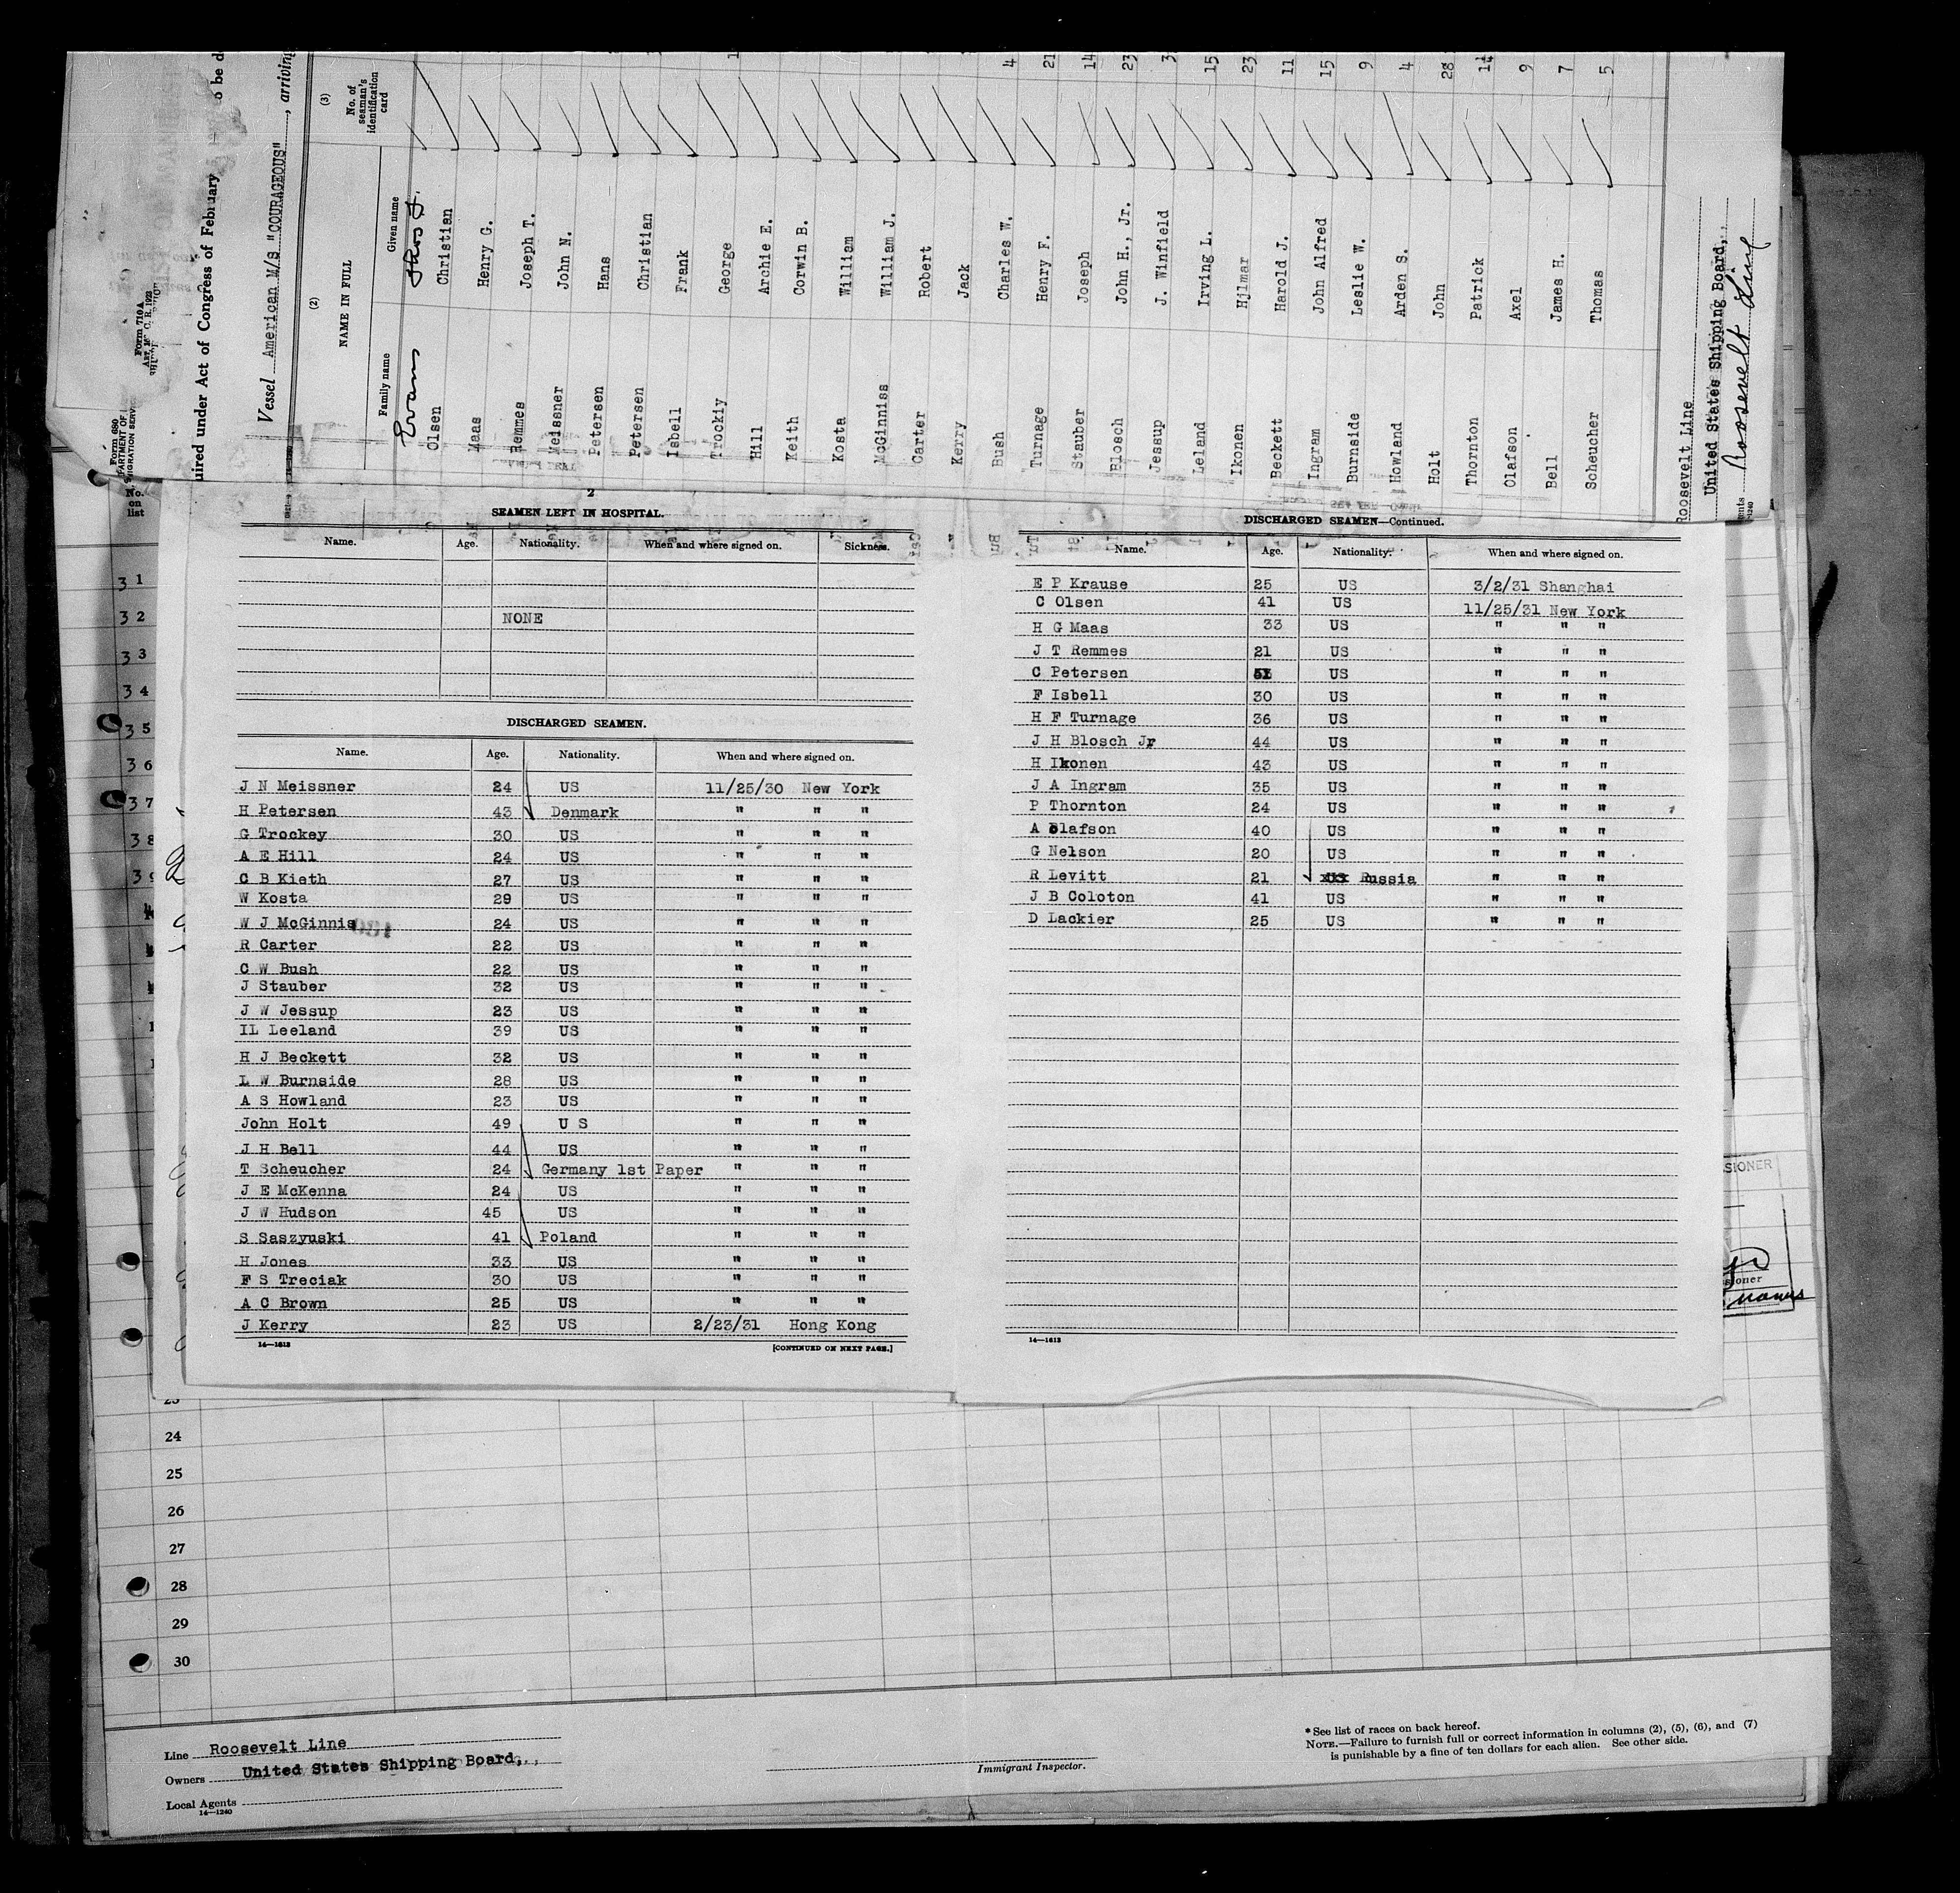 uired under Act of Congress of February
o be d
Form 710 A
Form 680
Vessel American M/S "COURAGEOUS", arriving
(3)
No. of seaman's identification card
(2)
NAME IN FULL
Family name Given name
Evans Thos F.
Olsen Christian
Maas Henry G.
Remmes Joseph T.
Meissner John N.
Petersen Hans
Petersen Christian
Isbell Frank
Trockiy George
Hill Archie E.
Keith Corwin B.
Kosta William
McGinniss William J.
Carter Robert
Kerry Jack
Bush Charles W. 4
Turnage Henry F. 21
Stauber Joseph 14
Blosch John H., Jr. 23
Jessup J. Winfield 3
Leland Irving L. 15
Ikonen Hjlmar 23
Beckett Harold J. 11
Ingram John Alfred 15
Burnside Leslie W. 9
Howland Arden S. 4
Holt John 28
Thornton Patrick
Olafson Axel 9
Bell James H. 7
Scheucher Thomas 5
Roosevelt Line
United States Shipping Board,
Roosevelt Line
No. on list
31
32
33
34
35
36
37
38
2
SEAMEN LEFT IN HOSPITAL.
Name. Age. Nationality. When and where signed on. Sickness.
NONE
DISCHARGED SEAMEN.
Name. Age. Nationality. When and where signed on.
J N Meissner 24 US 11/25/30 New York
H Petersen 43 Denmark " " "
G Trockey 30 US " " "
A E Hill 24 US " " "
C B Kieth 27 US " " "
W Kosta 29 US " " "
W J McGinnis 24 US " " "
R Carter 22 US " " "
C W Bush 22 US " " "
J Stauber 32 US " " "
J W Jessup 23 US " " "
IL Leeland 39 US " " "
H J Beckett 32 US " " "
L W Burnside 28 US " " "
A S Howland 23 US " " "
John Holt 49 U S " " "
J H Bell 44 US " " "
T Scheucher 24 Germany 1st Paper " " "
J E McKenna 24 US " " "
J W Hudson 45 US " " "
S Saszyuski 41 Poland " " "
H Jones 33 US " " "
F S Treciak 30 US " " "
A C Brown 25 US " " "
J Kerry 23 US 2/23/31 Hong Kong
14—1613 [CONTINUED ON NEXT PAGE.]
DISCHARGED SEAMEN—Continued.
Name. Age. Nationality. When and where signed on.
E P Krause 25 US 3/2/31 Shanghai
C Olsen 41 US 11/25/31 New York
H G Maas 33 US " " "
J T Remmes 21 US " " "
C Petersen US " " "
F Isbell 30 US " " "
H F Turnage 36 US " " "
J H Blosch Jr 44 US " " "
H Ikonen 43 US " " "
J A Ingram 35 US " " "
P Thornton 24 US " " "
A Olafson 40 US " " "
G Nelson 20 US " " "
R Levitt 21 Russia " " "
J B Coloton 41 US " " "
D Lackier 25 US " " "
14—1613
24
25
26
27
28
29
30
Line Roosevelt Line
Owners United States Shipping Board,
Local Agents
14—1240
Immigrant Inspector.
*See list of races on back hereof.
NOTE.—Failure to furnish full or correct information in columns (2), (5), (6), and (7)
is punishable by a fine of ten dollars for each alien. See other side.